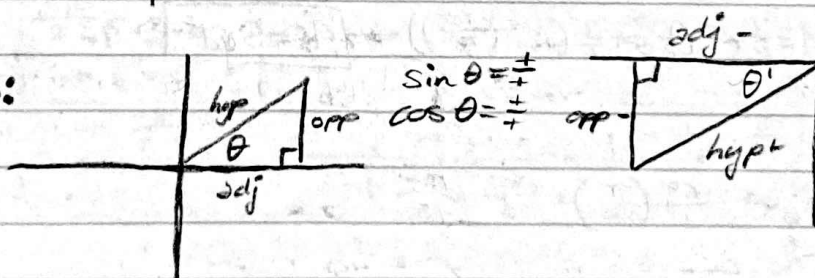 :
hyp
θ
opp
adj
sin θ = +/+
cos θ = +/+
adj -
θ'
opp -
hyp +